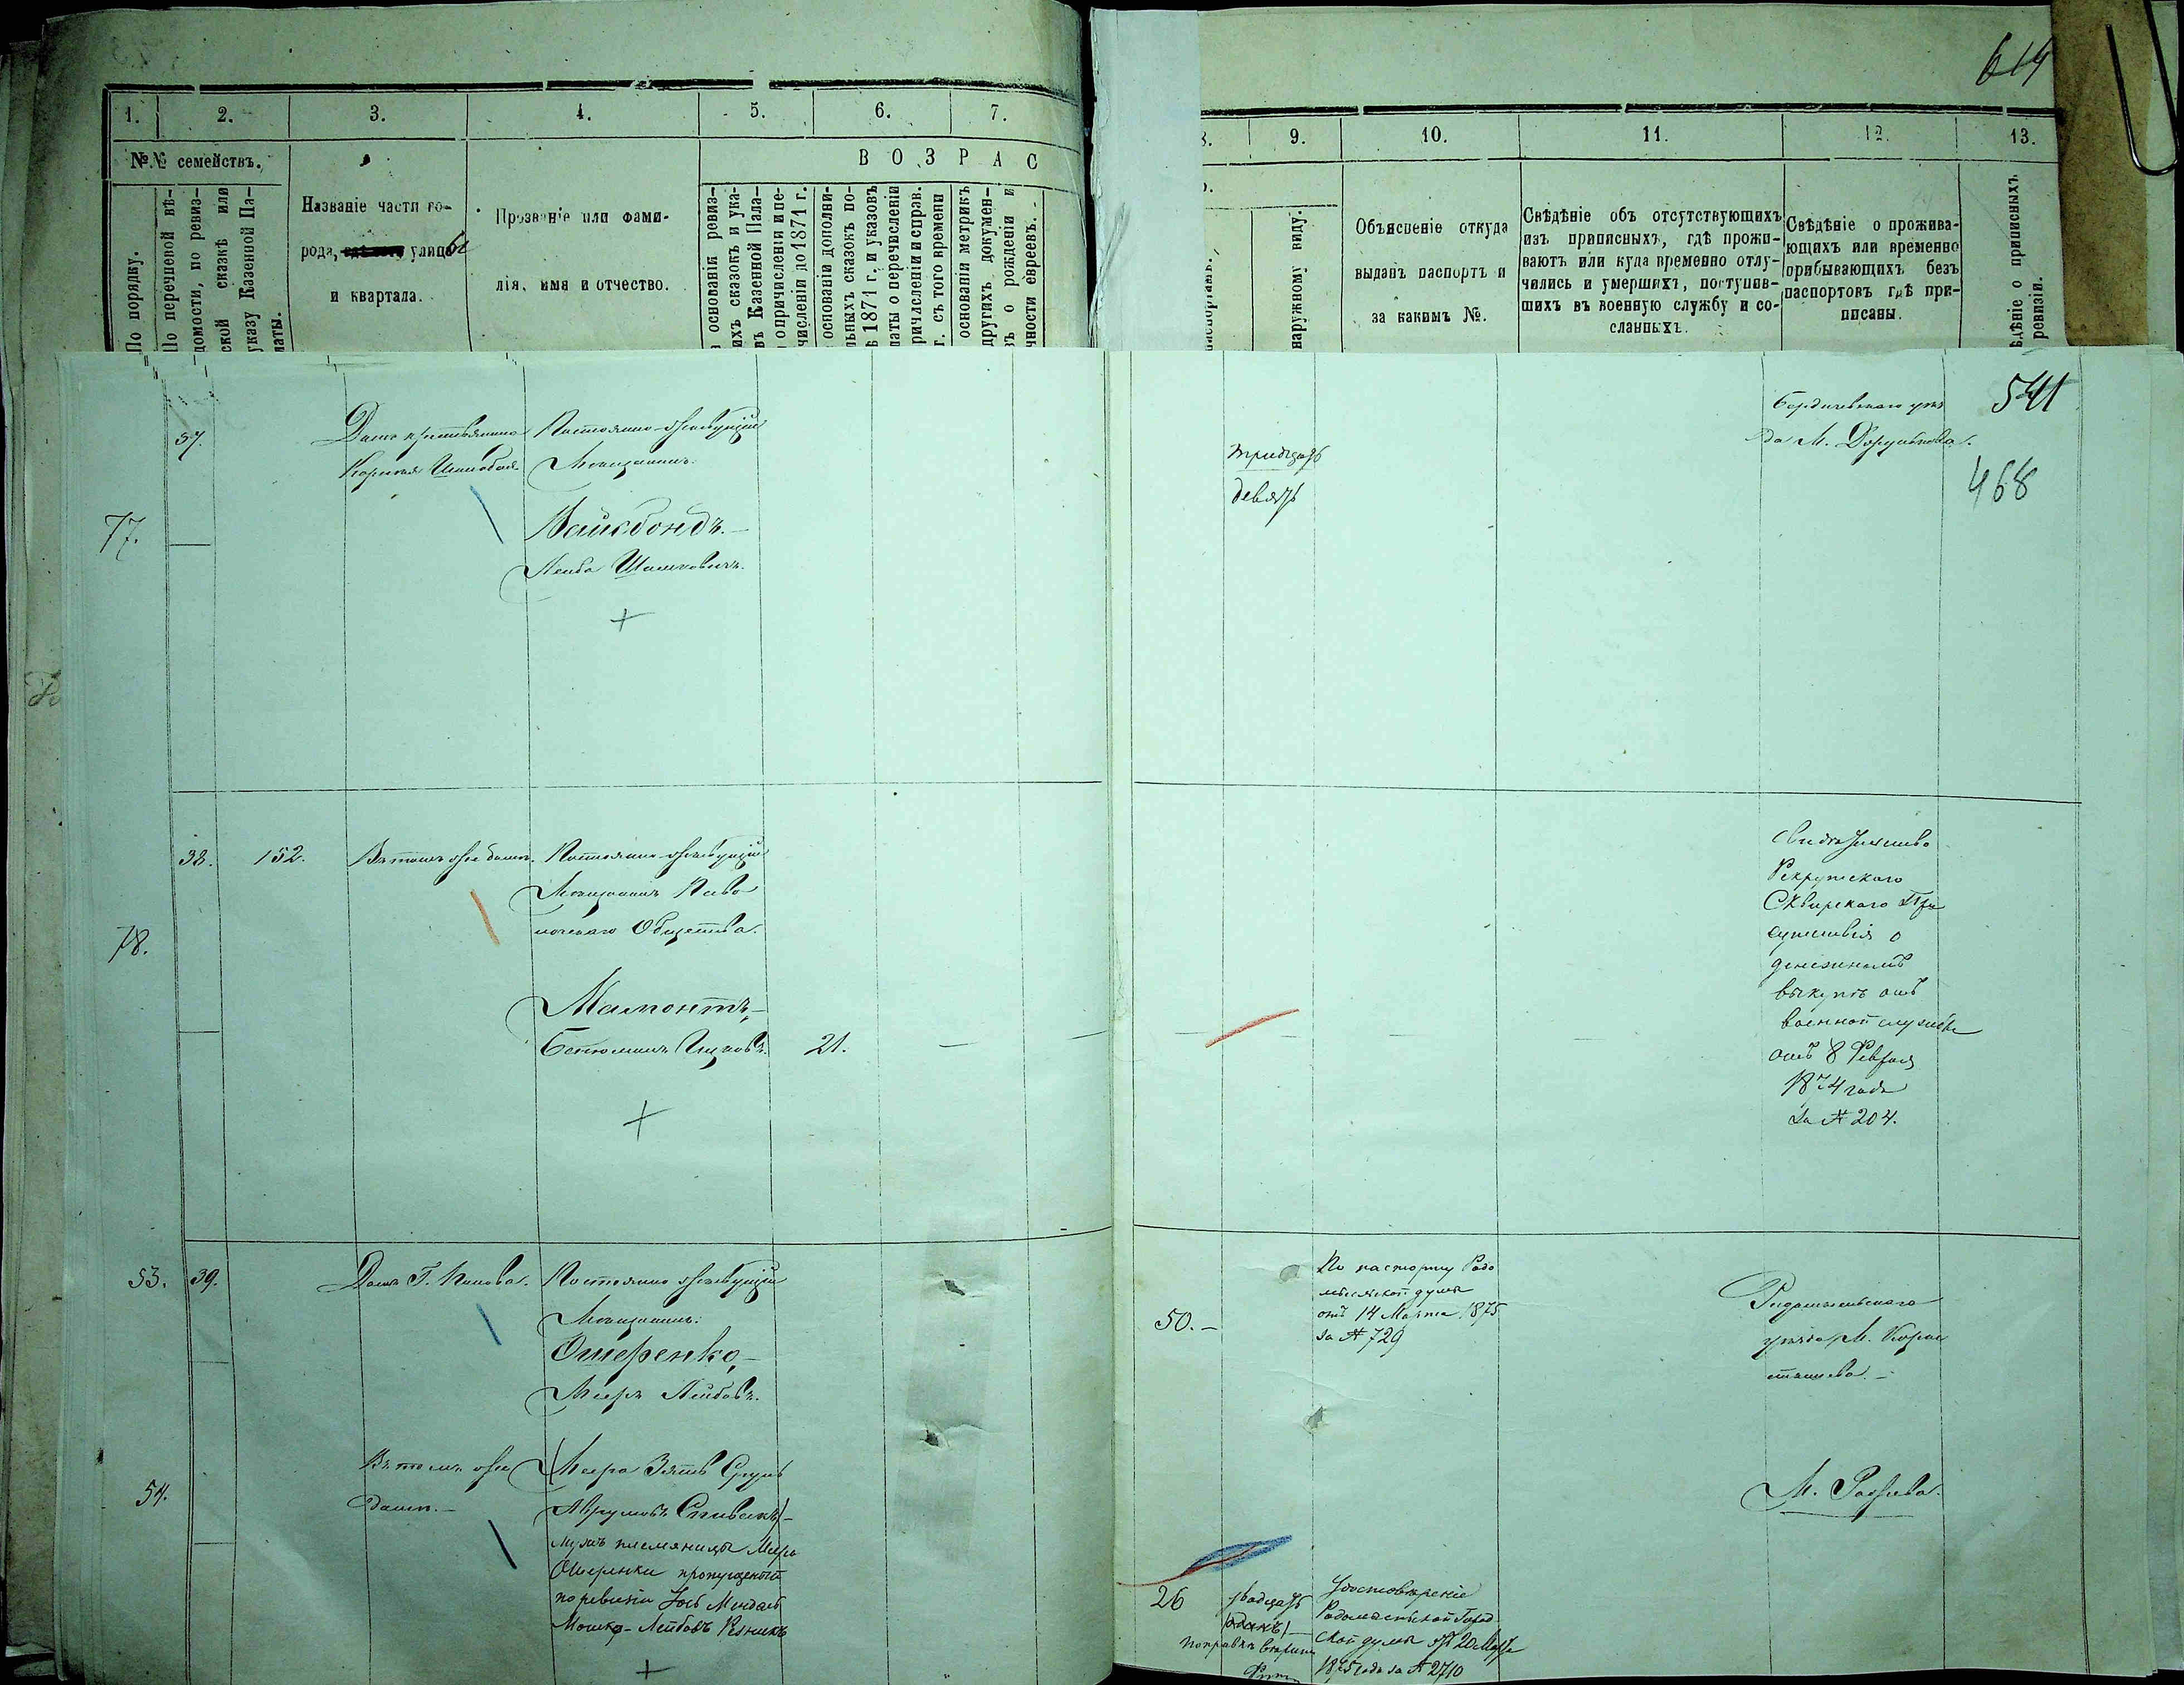 614
1. 2. 3. 4. 5. 6. 7.
№№ семействъ.
В О З Р А С
По порядку.
По перечневой вѣ-
домости, по ревиз-
ской сказкѣ или
указу Казенной Па-
латы.
Названіе части го-
рода, улицы
и квартала.
Прозваніе или фами-
лія, имя и отчество.
основаніи ревиз-
ихъ сказокъ и ука-
въ Казенной Пала-
о причисленіи и пе-
численіи до 1871 г.
основаніи дополни-
льныхъ сказокъ по-
ѣ 1871 г. и указовъ
латы о перечисленіи
ричисленіи и справ.
г. съ того времени
основаніи метрикъ
другихъ докумен-
въ о рожденіи и
чности евреевъ.
8. 9. 10. 11. 12. 13.
наружному виду.
Объясненіе откуда
выданъ паспортъ и
за какимъ №.
Свѣдѣніе объ отсутствующихъ
изъ приписныхъ, гдѣ прожи-
ваютъ или куда временно отлу-
чились и умершихъ, поступив-
шихъ въ военную службу и со-
сланныхъ.
Свѣдѣніе о прожива-
ющихъ или временно
прибывающихъ безъ
паспортовъ гдѣ при-
писаны.
ѣдѣніе о приписныхъ
ревизіи.
541
468
77.
37.
Домъ крестьянина
Постоянно живущій
Мещанинъ.
Вайсбондъ.
Лейба Шмулевичъ.
+
тридцать
девять
Бердичевскаго уѣз
да М.
78.
38. 152.
Въ томъ же домѣ.
Постоянно живущій
Мещанинъ
Общества.
Мамонтъ,
Беньюминъ Ицковъ.
21.
+
Свидѣтельство
Рекрутскаго
Сквирскаго При
сутствія о
денежномъ
выкупѣ отъ
военной службы
отъ 8 Февраля
1874 года
За № 204.
53. 39.
Домъ Г. Попова.
Постоянно живущій
Мещанинъ:
Ошеренко,
Мееръ Лейбовъ.
50.
По паспорту Радо
мысльской думы
отъ 14 Марта 1875
за № 729
Радомысльскаго
уѣзда М. Корос
тышева.
54.
Въ томъ же
домѣ.
Меера Зять Сруль
Аврумовъ Спивакъ)
мужъ племяницы Меера
Ошеренки пропущеный
по ревизіи Іось Мендель
Мошко-Лейбовъ Резникъ
+
26
двадцать
(одинъ)
Удостовѣреніе
Радомысльской Город
ской думы отъ 20 Марта
1875 года за № 2710
М.